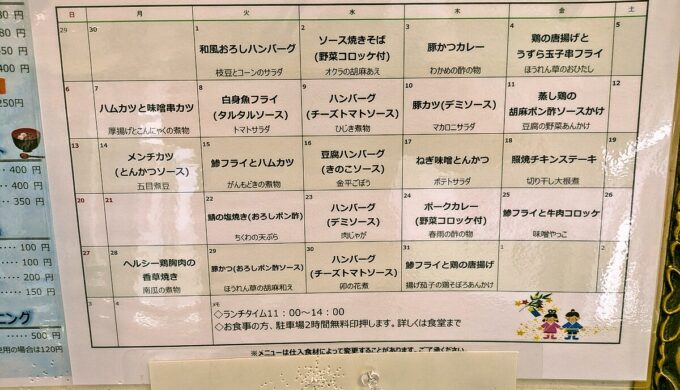 円
380 円
400 円
250円
400 円
400 円
350 円
100 円
100 円
150 円
ニング
500 円
使用の場合は120円
日 月 火 水 木 金 土
29 30 1 2 3 4 5
和風おろしハンバーグ
枝豆とコーンのサラダ
ソース焼きそば
(野菜コロッケ付)
オクラの胡麻あえ
豚かつカレー
わかめの酢の物
鶏の唐揚げと
うずら玉子串フライ
ほうれん草のおひたし
6 7 8 9 10 11 12
ハムカツと味噌串カツ
厚揚げとこんにゃくの煮物
白身魚フライ
(タルタルソース)
トマトサラダ
ハンバーグ
(チーズトマトソース)
ひじき煮物
豚カツ(デミソース)
マカロニサラダ
蒸し鶏の
胡麻ポン酢ソースかけ
豆腐の野菜あんかけ
13 14 15 16 17 18 19
メンチカツ
(とんかつソース)
五目煮豆
鯵フライとハムカツ
がんもどきの煮物
豆腐ハンバーグ
(きのこソース)
金平ごぼう
ねぎ味噌とんかつ
ポテトサラダ
照焼チキンステーキ
切り干し大根煮
20 21 22 23 24 25 26
鯖の塩焼き(おろしポン酢)
ちくわの天ぷら
ハンバーグ
(デミソース)
肉じゃが
ポークカレー
(野菜コロッケ付)
春雨の酢の物
鯵フライと牛肉コロッケ
味噌やっこ
27 28 29 30 31 1 2
ヘルシー鶏胸肉の
香草焼き
南瓜の煮物
豚かつ(おろしポン酢ソース)
ほうれん草の胡麻和え
ハンバーグ
(チーズトマトソース)
卯の花煮
鯵フライと鶏の唐揚げ
揚げ茄子の鶏そぼろあんかけ
3 4 メモ
◇ランチタイム11：00～14：00
◇お食事の方、駐車場2時間無料印押します。詳しくは食堂まで
※メニューは仕入食材によって変更することがあります。ご了承ください